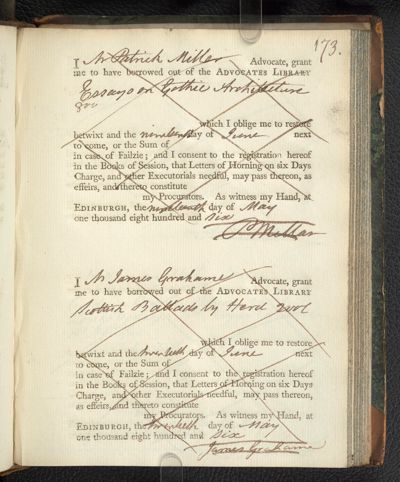 173.
I Mr Patrick Miller Advocate, grant
me to have borrowed out of the ADVOCATES LIBRARY
Essays on Gothic Architecture
8vo
which I oblige me to restore
betwixt and the nineteenth day of June next
to come, or the Sum of
in case of Failzie; and I consent to the registration hereof
in the Books of Session, that Letters of Horning on six Days
Charge, and other Executorials needful, may pass thereon, as
effeirs, and thereto constitute
my Procurators. As witness my Hand, at
EDINBURGH, the nineteenth day of May
one thousand eight hundred and six
P Millar
I Mr James Grahame Advocate, grant
me to have borrowed out of the ADVOCATES LIBRARY
Scottish Ballads by Herd 2vol
which I oblige me to restore
betwixt and the twentieth day of June next
to come, or the Sum of
in case of Failzie; and I consent to the registration hereof
in the Books of Session, that Letters of Horning on six Days
Charge, and other Executorials needful, may pass thereon,
as effeirs, and thereto constitute
my Procurators. As witness my Hand, at
EDINBURGH, the twentieth day of May
one thousand eight hundred and six
James Grahame